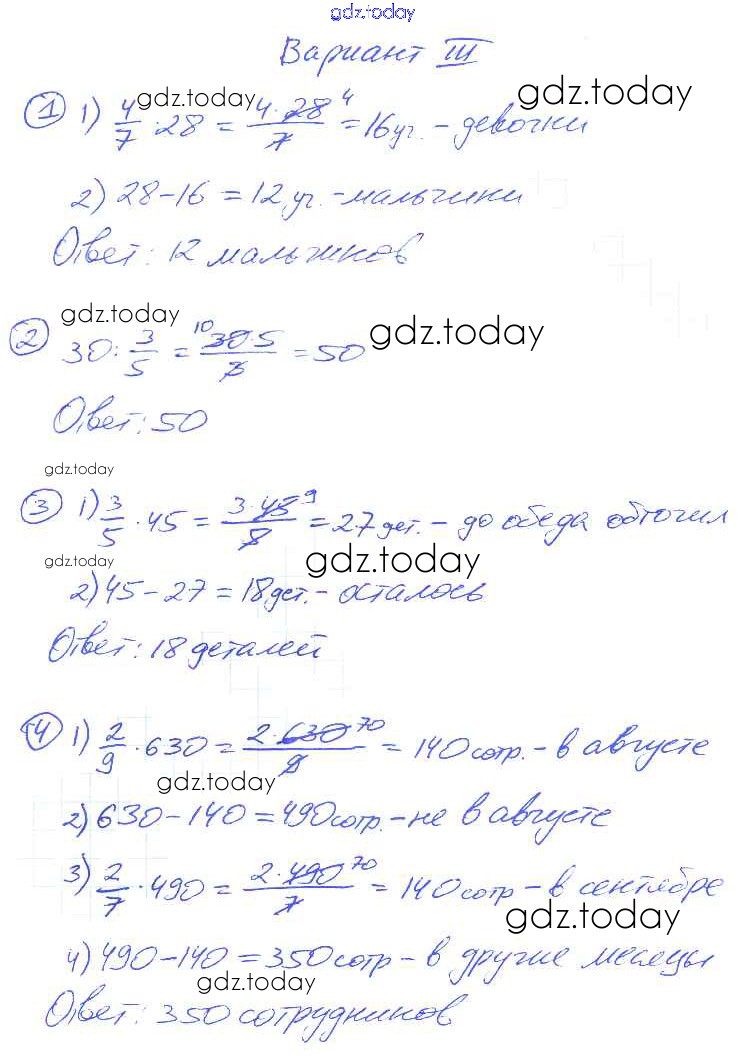 gdz.today
Вариант III
gdz.today gdz.today
1 1) 4/7 · 28 = 4·28 4/7 = 16 уч. - девочки
2) 28 - 16 = 12 уч. - мальчики
Ответ: 12 мальчиков
gdz.today gdz.today
2 30 : 3/5 = 10 30·5/3 = 50
Ответ: 50
gdz.today
3 1) 3/5 · 45 = 3·45 9/5 = 27 дет. - до обеда обточил
gdz.today gdz.today
2) 45 - 27 = 18 дет. - осталось
Ответ: 18 деталей
4 1) 2/9 · 630 = 2·630 70/9 = 140 сотр. - в августе
gdz.today
2) 630 - 140 = 490 сотр. - не в августе
3) 2/7 · 490 = 2·490 70/7 = 140 сотр - в сентябре
gdz.today
4) 490 - 140 = 350 сотр - в другие месяцы
gdz.today
Ответ: 350 сотрудников